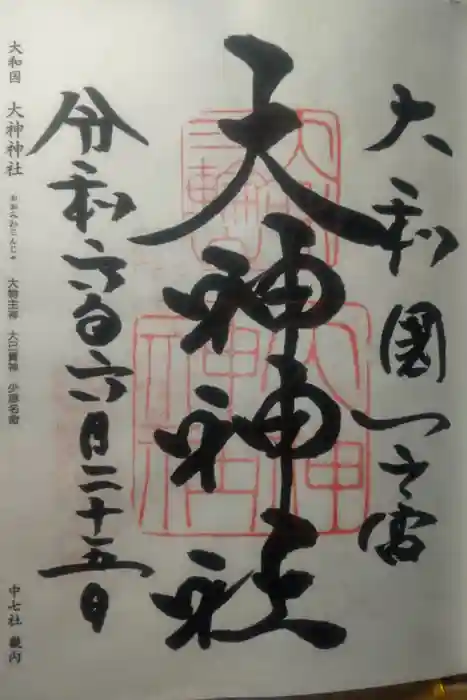 大和國一之宮
大神神社
令和六年六月二十五日
三輪
大神神社
大和国 大神神社 おおみわじんじゃ 大物主神 大己貴神 少彦名命 中七社 畿内